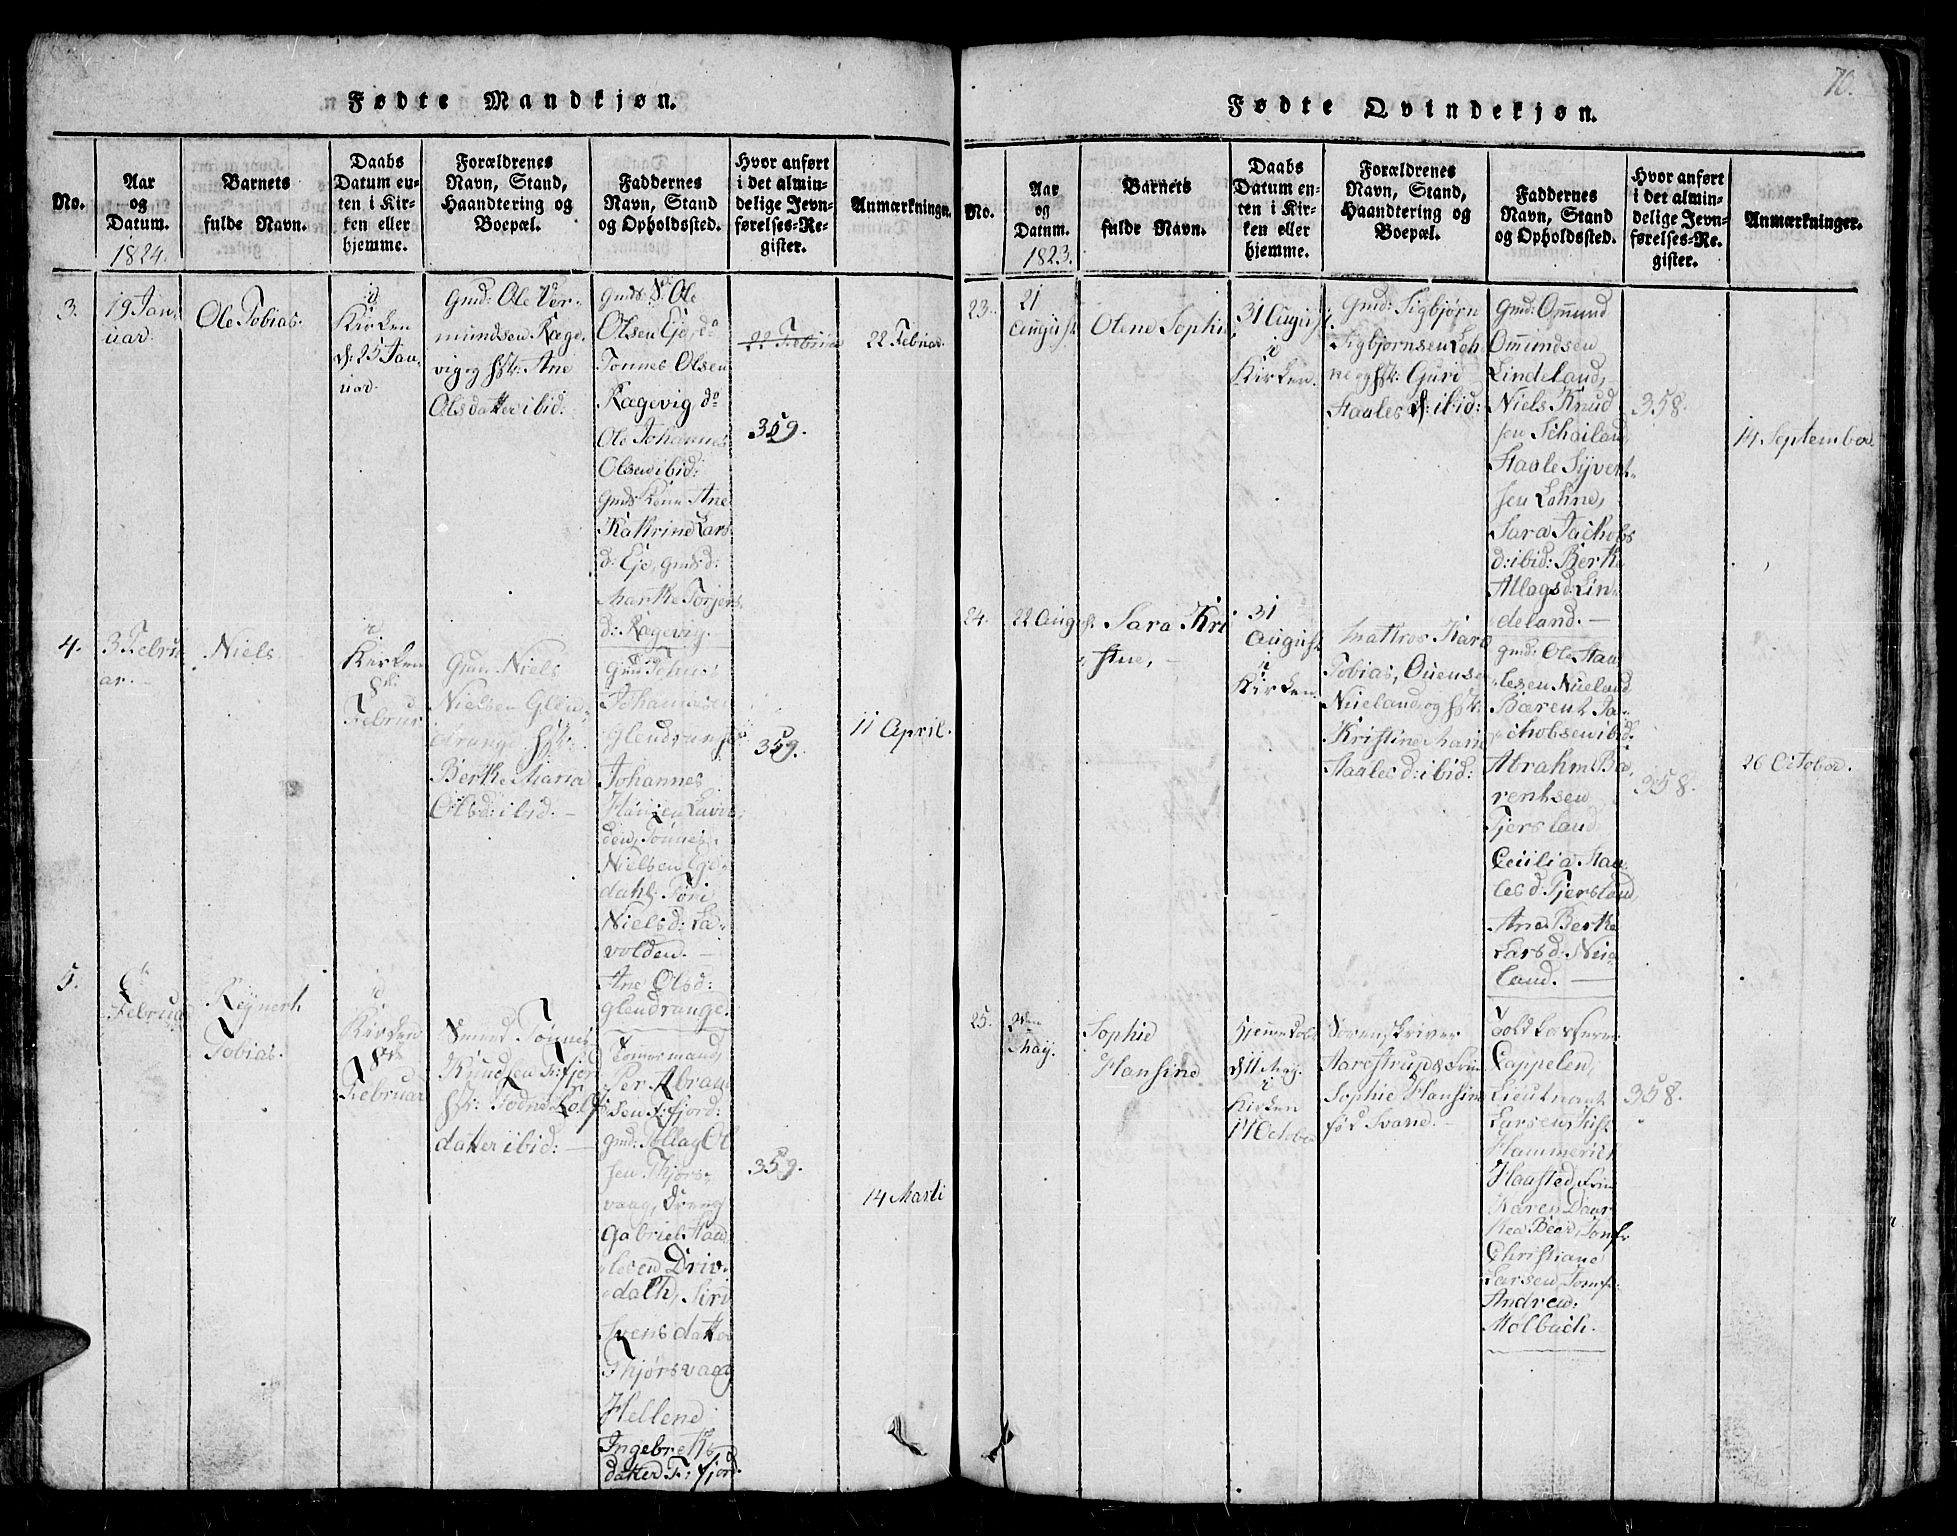 Fødte Mandkjøn.
No.
Aar
og
Datum.
1824.
Barnets
fulde Navn.
Daabs
Datum en-
ten i Kir-
ken eller
hjemme.
Forældrenes
Navn, Stand,
Haandtering og
Boepæl.
Faddernes
Navn, Stand
og Opholdssted.
Hvor anført
i det almin-
delige Jevn-
førelses-Re-
gister.
Anmærkninger.
3.
19 Jan,
uar.
Ole Tobias.
i
Kirken
d: 25 Jan-
uar.
Gmd: Ole Ver-
mundsen Ræge-
vig og hst: Ane
Olsdatter ibid:
Gmds: S. Ole
Olsen Eje, do
Tonnes Olsen
Ragevig do
Ole Johannes
Olsen ibid:
gmds Kone Ane
Kathrine Lars
d: Eje, gmds d:
Marthe Torjers
d: Ragevig.
22 Februar
359.
22 Februar.
4.
3 Febru
ar.
Niels
i
Kirken
8de
Februar
Gmd. Niels
Nielsen Glen-
drange hst:
Berthe Maria
Olsd: ibid.
Gmd: Johannes
Johannesen
glendrange
Johannes
Hansen
den, Tønnes
Nielsen Ege-
dahl, Tøri
Nielsd: La-
volden.
Ane Olsd:
glendrange.
359.
11 April.
5.
Februar
Reijnert
Tobias.
i
Kirken
8de
Februar
Smed Tønnes
Knudsen F: fjor
hst: Todne Rolfs
datter ibid:
Tømmermand
Per Abram
sen F: fjord:
gmd: Tollag Ol
sen Thjørs-
vaag, Dreng
Gabriel Haa
lesen Driv-
dalh, Siri
Svensdatter
Thjørsvaag
Hellene
Ingebreths
datter F: fjord.
359.
14 Marti
Fødte Qvindekjøn.
70.
No.
Aar
og
Datum.
1823.
Barnets
fulde Navn.
Daabs
Datum en-
ten i Kir-
ken eller
hjemme.
Forældrenes
Navn, Stand,
Haandtering og
Boepæl.
Faddernes
Navn, Stand
og Opholdssted.
Hvor anført
i det almin-
delige Jevn-
førelses-Re-
gister.
Anmærkninger.
23.
21
August
Olene Sophie
31 August
i
Kirken.
Gmd: Sigbjørn
Sigbjørnsen Loh
ne og hst: Guri
Haales d: ibid:
Gmd: Ommund
Ommundsen
Lindeland,
Niels Knud
sen Schailand
Haale Syvert-
sen Lohne,
Sara Jachobs
d: ibid: Berthe
Atlagsd: Lin-
deland.
358.
14 September.
24.
22 August
Sara Kri
stine,
31
August
i
Kirken
Matros Karl
Tobias, Ouensen
Nueland, og hst:
Kristine Marie
Haales d: ibid:
gmd: Ole Haa-
lesen Nueland
Bærent Ja-
chobsen ibid.
Abrahm Bæ-
rentsen
Tjersland
Cecilia Haa
les d. Tjersland,
Ane Berthe
Larsd: Nue-
land.
358.
26 October.
25.
2den
May.
Sophie
Hansine
Hjemme døbt
d 11 May.
i
Kirken
17 October
Sorenskriver
Aarestrup & Fru
Sophie Hansine
fød Svane.
Toldkasserer
Cappelen,
Lieutnant
Larsen, Just
Hammerich
Haasted, Fru
Karen Doar
Bear, Jomfr
Christiane
Larsen, Jomfr:
Andrea:
Molbach.
358.